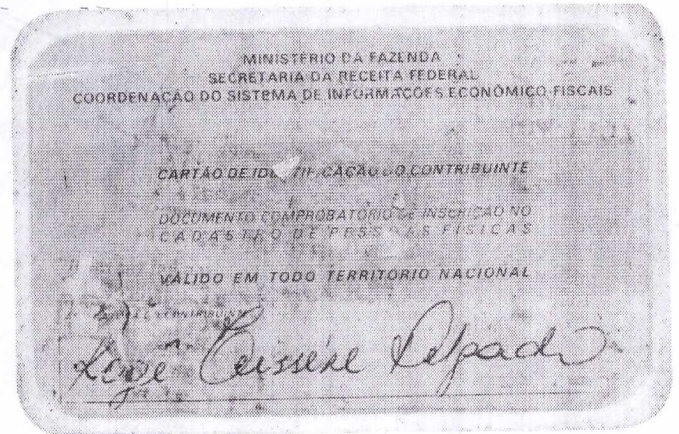 MINISTÉRIO DA FAZENDA
SECRETARIA DA RECEITA FEDERAL
COORDENAÇÃO DO SISTEMA DE INFORMAÇÕES ECONÔMICO-FISCAIS
CARTÃO DE IDENTIFICAÇÃO DO CONTRIBUINTE
DOCUMENTO COMPROBATÓRIO DE INSCRIÇÃO NO
CADASTRO DE PESSOAS FÍSICAS
VÁLIDO EM TODO TERRITÓRIO NACIONAL
CONTRIBUINTE
Delgado